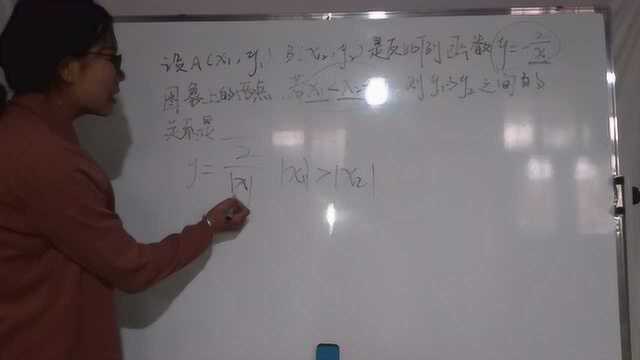 设A(x₁,y₁) B(x₂,y₂)是反比例函数y=-2/x
图象上的两点,若x₁<x₂ 则y₁与y₂之间的
关系是
y=2/|x| |x₁|>|x₂|